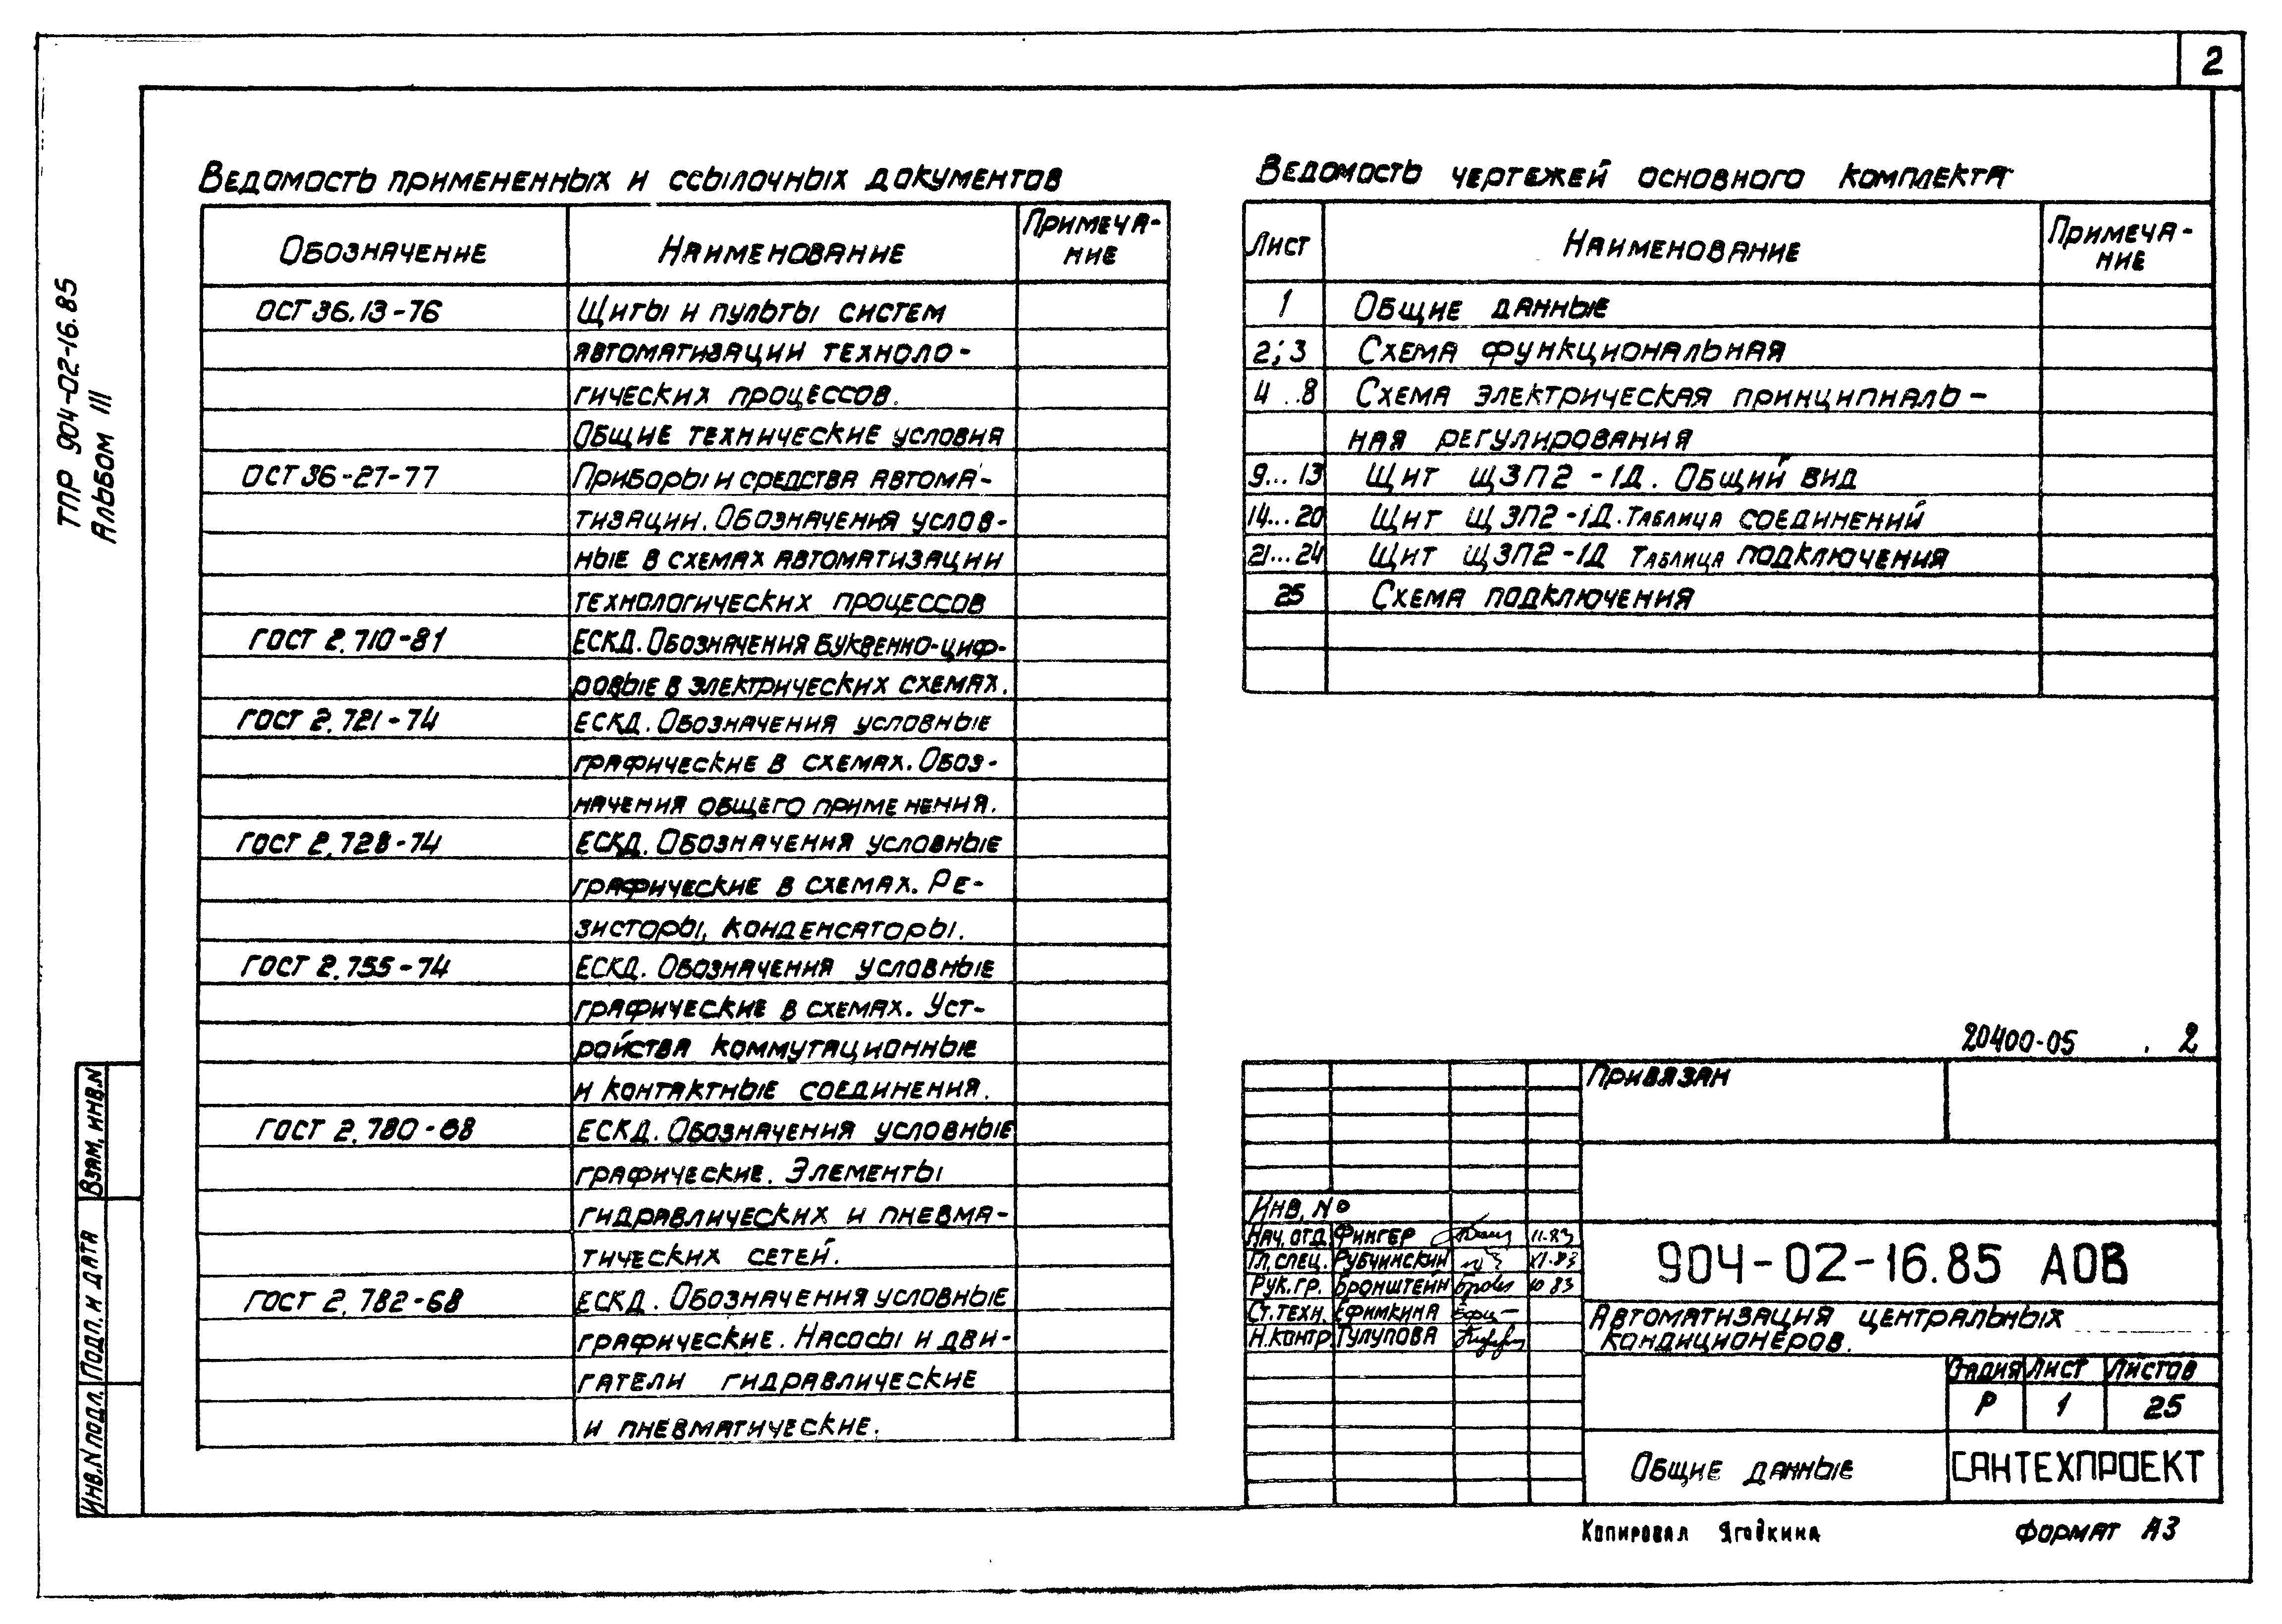 2
ТПР 904-02-16.85
Альбом III
Ведомость примененных и ссылочных документов
Обозначение Наименование Примеча-
ние
ОСТ 36.13-76 Щиты и пульты систем
автоматизации техноло-
гических процессов.
Общие технические условия
ОСТ 36-27-77 Приборы и средства автома-
тизации. Обозначения услов-
ные в схемах автоматизации
технологических процессов
ГОСТ 2.710-81 ЕСКД. Обозначения буквенно-циф-
ровые в электрических схемах.
ГОСТ 2.721-74 ЕСКД. Обозначения условные
графические в схемах. Обоз-
начения общего применения.
ГОСТ 2.728-74 ЕСКД. Обозначения условные
графические в схемах. Ре-
зисторы, конденсаторы.
ГОСТ 2.755-74 ЕСКД. Обозначения условные
графические в схемах. Уст-
ройства коммутационные
и контактные соединения.
ГОСТ 2.780-68 ЕСКД. Обозначения условные
графические. Элементы
гидравлических и пневма-
тических сетей.
ГОСТ 2.782-68 ЕСКД. Обозначения условные
графические. Насосы и дви-
гатели гидравлические
и пневматические.
Ведомость чертежей основного комплекта
Лист Наименование Примеча-
ние
1 Общие данные
2; 3 Схема функциональная
4...8 Схема электрическая принципиаль-
ная регулирования
9...13 Щит ЩЗП2-1Д. Общий вид
14...20 Щит ЩЗП2-1Д. Таблица соединений
21...24 Щит ЩЗП2-1Д Таблица подключения
25 Схема подключения
20400-05 . 2
Привязан
Инв. №
Нач. отд. Фингер 11.83
Гл. спец. Рубчинский XI.83
Рук. гр. Бронштейн 10 83
Ст. техн. Ефимкина
Н. контр. Тулупова
904-02-16.85 АОВ
Автоматизация центральных
кондиционеров.
Стадия Лист Листов
Р 1 25
Общие данные
САНТЕХПРОЕКТ
Взам. инв. N
Подп. и дата
Инв. N подл.
Копировал Ягодкина Формат А3